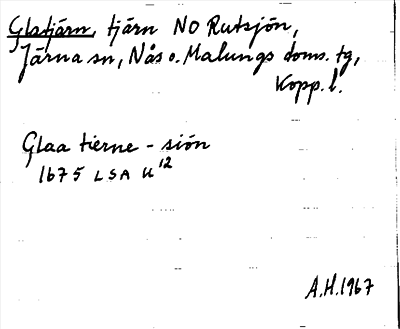 Glatjärn, tjärn NO Rutsjön,
Järna sn, Nås o. Malungs doms. tg,
Kopp. l.
Glaa tierne - siön
1675 LSA U 12
A.H. 1967